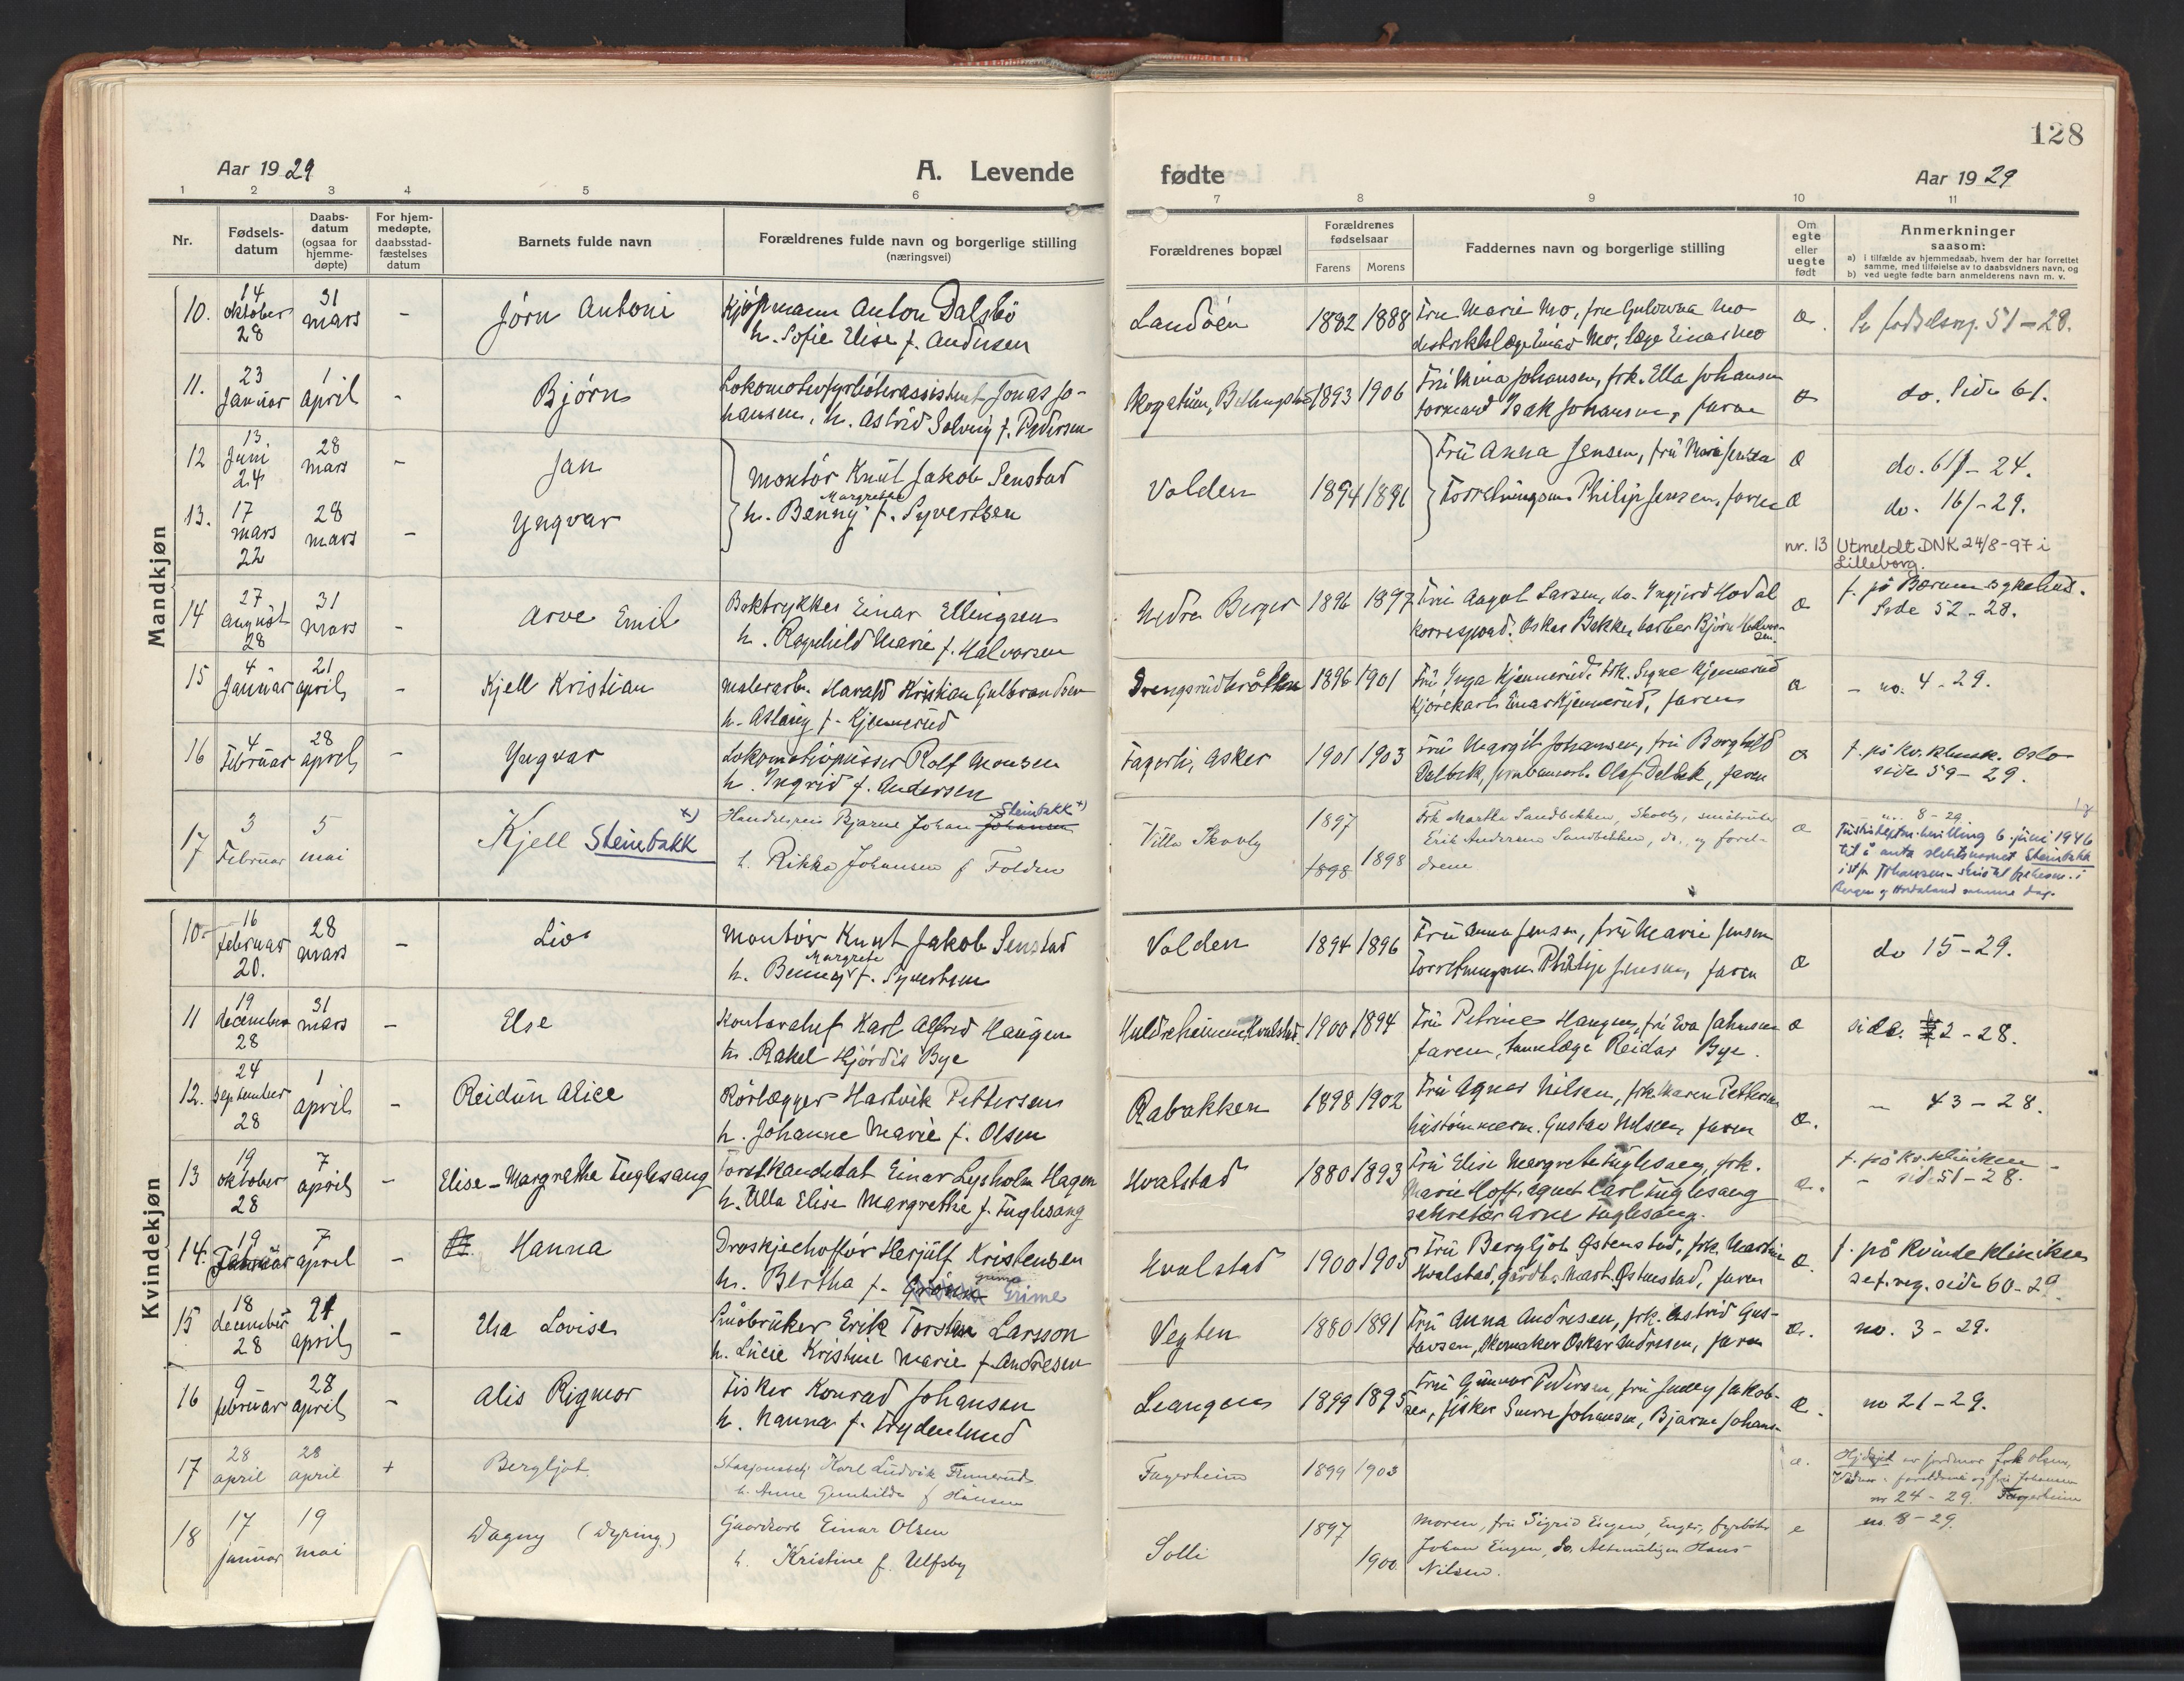 128
Aar 1929
A. Levende
fødte
Aar 1929
1 2 3 4 5 6 7 8 9 10 11
Nr.
Fødsels-
datum
Daabs-
datum
(ogsaa for
hjemme-
døpte)
For hjem-
medøpte,
daabsstad-
fæstelses
datum
Barnets fulde navn
Forældrenes fulde navn og borgerlige stilling
(næringsvei)
Forældrenes bopæl
Forældrenes
fødselsaar
Farens Morens
Faddernes navn og borgerlige stilling
Om
egte
eller
uegte
født
Anmerkninger
saasom:
a) i tilfælde av hjemmedaab, hvem der har forrettet
samme, med tilføielse av to daabsvidners navn, og
b) ved uegte fødte barn anmelderens navn m. v.
Mandkjøn
10. 14 oktober 28 31 mars - Jørn Antoni
Kjøpmann Anton Dalsbö
h. Sofie Elise f. Andersen
Landöen 1882 1888
Fru Marie Mo, fru Mo
distriktslæge Einar Mo, læge Einar Mo
Se fødselsreg. 51-28.
11. 23 Januar 1 april - Bjørn
Lokomotivfyrböterassistent Jonas Jo-
hansen, h. Astrid Solveig f. Pedersen
1893 1906
Frü Mina Johansen, frk. Ella Johansen
formand Isak Johansen, faren
do. Side 61.
12 13 Juni 24 28 mars - Jan
Montör Knut Jakob Senstad
h. Benny Margrethe f. Syvertsen
Volden 1894 1896
Frü Anna Jensen, frü Marie Jensen
Forretningsm. Philip Jensen, faren
æ
do. 61/-24.
13. 17 mars 22 28 mars - Yngvar
æ
do. 16/-29.
nr. 13 Utmeldt DNK 24/8-97 i
Lilleborg.
14 27 august 28 31 mars - Arve Emil
Boktrykker Einar Ellingsen
h. Ragnhild Marie f. Halvorsen
Nedre Berger 1896 1897
Frü Aagot Larsen, do. Ingjerd Hodal
korrespond. Oskar Bakke, barber Björn Halvor-
sen.
æ
f. på Bærum sykehus.
Side 52-28.
15 4 Januar 21 april - Kjell Kristian
Malerarb. Harald Kristian Gulbrandsen
h. Aslaug f. Kjennerud
Drengsrudbråtten 1896 1901
Frü Inga Kjennerud, frk. Signe Kjennerud
kjörekarl Einar Kjennerud, faren
æ
- no. 4-29.
16 4 Februar 28 april - Yngvar
Lokomotivpusser Rolf Monsen
h. Ingrid f. Andersen
Fagerli, Asker 1901 1903
Frü Margit Johansen, frü Borghild
Dalbek, jernbanearb. Olaf Dalbek, faren
æ
f. på kv.klinik. Oslo
side 59-29.
17 3 Februar 5 mai Kjell Steinbakk x)
Handelsreis Bjarne Johan Johansen Steinbakk x)
h. Rikka Johansen f Folden
Villa Skovly 1897 1898 1898
Frk Martha Sandbakken, Skovly, småbruker
Erik Andersen Sandbakken, do., og forel-
drene
æ
8-29.
Justisdeptm. bevilling 6. juni 1946
til å anta slektsnavnet Steinbakk
istf. Johansen
Bergen og Hordaland samme dag.
Kvindekjøn
10. 16 februar 20. 28 mars - Liv
Montör Knut Jakob Senstad
h. Benny Margrete f. Syvertsen
Volden 1894 1896
Frü Anna Jensen, frü Marie Jensen
Forretningsm. Philip Jensen, faren
æ
do 15-29.
11 19 december 28 31 mars - Else
Kontorchef Karl Alfred Haugen
h. Rakel Hjördis Bye
Huldreheimen, Hvalstad. 1900 1894
Frü Petrine Haugen, frü Eva Johansen
faren, tannlæge Reidar Bye.
æ
side 2-28.
12. 24 september 28 1 april - Reidun Alice
Rörlægger Hartvik Pettersen
h. Johanne Marie f. Olsen
Rabakken 1898 1902
Frü Agnes Nilsen, frk. Maren Pettersen
hustömmerm. Gustav Nilsen, faren
æ.
- 43-28.
13 19 oktober 28 7 april - Elise-Margrethe Fuglesang
Forstkandidat Einar Lysholm Hagen
h. Ulla Elise Margrethe f. Fuglesang
Hvalstad 1880 1893
Frü Elise Margrethe Fuglesang, frk.
Marie Hoff, agent Carl Fuglesang
sekretær Arne Fuglesang.
æ.
f. på kv.kliniken
- side 51-28.
14. 19 Februar 7 april - Hanna
Droskjechofför Herjulf Kristensen
h. Bertha f. Grime
Hvalstad 1900 1905
Frü Bergljot Østenstad, frk. Martha
Hvalstad, gårdbr. Mart. Østenstad, faren
æ.
f. på Kvindekliniken
se f.reg. side 60-29.
15 18 december 28 21 april - Elsa Lovise
Småbruker Erik Torsten Larsson
h. Lücie Kristine Marie f. Andresen
Vegten 1880 1891
Frü Anna Andresen, frk. Astrid Gus-
tavsen, skomaker Oskar Andresen, faren
æ.
no. 3-29.
16 9 februar 28 april - Alis Rigmor
Fisker Konrad Johansen
h. Nanna f. Frydenlund
Leangen 1899 1895
Frü Gunvor Pedersen, frü Jenny Jakob-
sen, fisker Sverre Johansen, Bjarne Johans-
æ.
no 21-29.
17 28 april 28 april + Bergljot
Stasjonsbetj. Karl Ludvik Finnerud
h. Anne Gunhilda f Hansen
Fagerheim 1899 1903
æ.
Hjdøpt av jordmor frk Olsen,
Vidner: foreldrene og frü Johansen
nr 24-29. Fagerheim
18 17 januar 19 mai Dagny (Dyring)
Gaardsarb Einar Olsen
h. Kristine f. Ulfsby
Solli 1897 1900
Moren, frü Sigrid Engen, Enger, fyrböter
Johan Engen, do. Hans
Nilsen.
e
nr. 8-29.